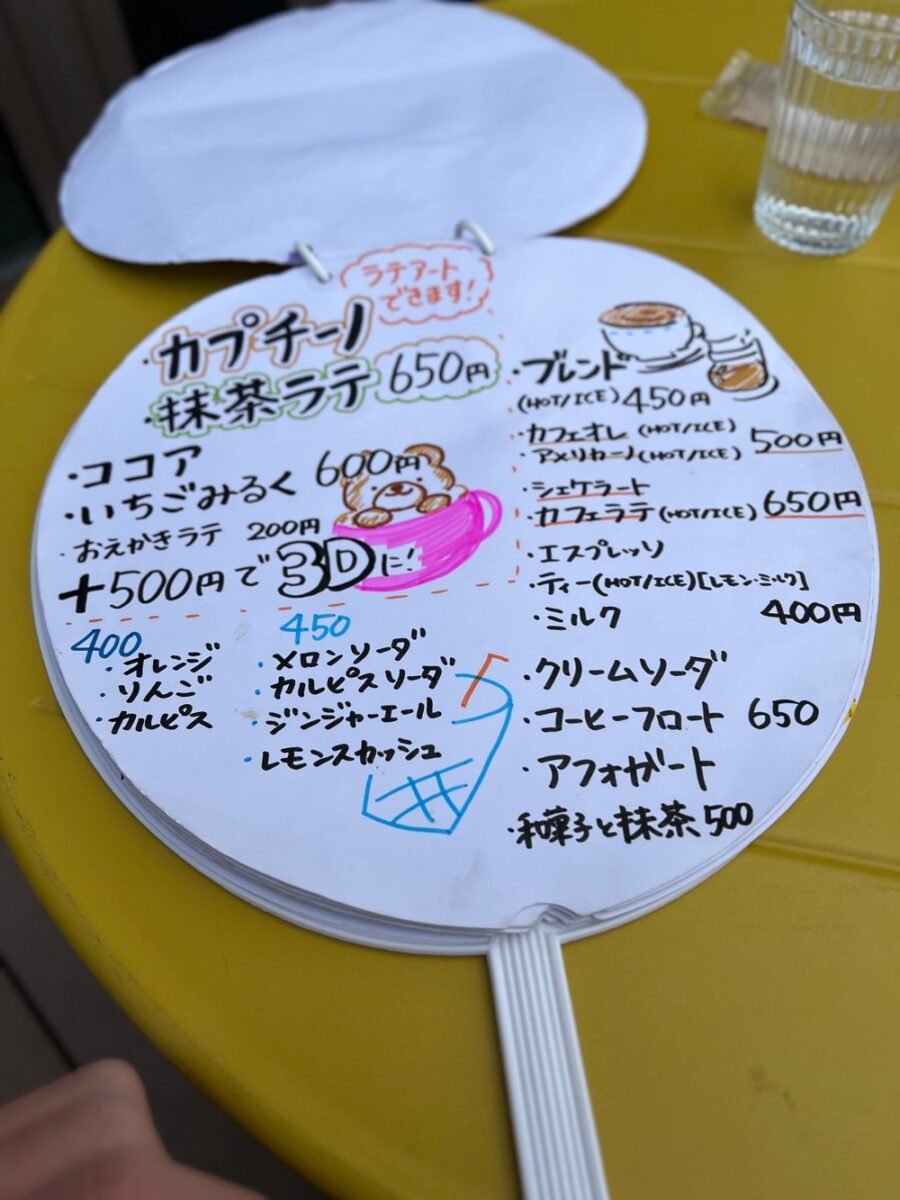 ラテアート
できます!
・カプチーノ
・抹茶ラテ 650円
・ココア
・いちごみるく 600円
・おえかきラテ 200円
+500円で3Dに!
400
・オレンジ
・りんご
・カルピス
450
・メロンソーダ
・カルピスソーダ
・ジンジャーエール
・レモンスカッシュ
・ブレンド
(HOT/ICE) 450円
・カフェオレ (HOT/ICE)
・アメリカーノ(HOT/ICE) 500円
・シェケラート
・カフェラテ(HOT/ICE) 650円
・エスプレッソ
・ティー(HOT/ICE)[レモン・ミルク]
・ミルク 400円
・クリームソーダ
・コーヒーフロート 650
・アフォガート
・和菓子と抹茶 500